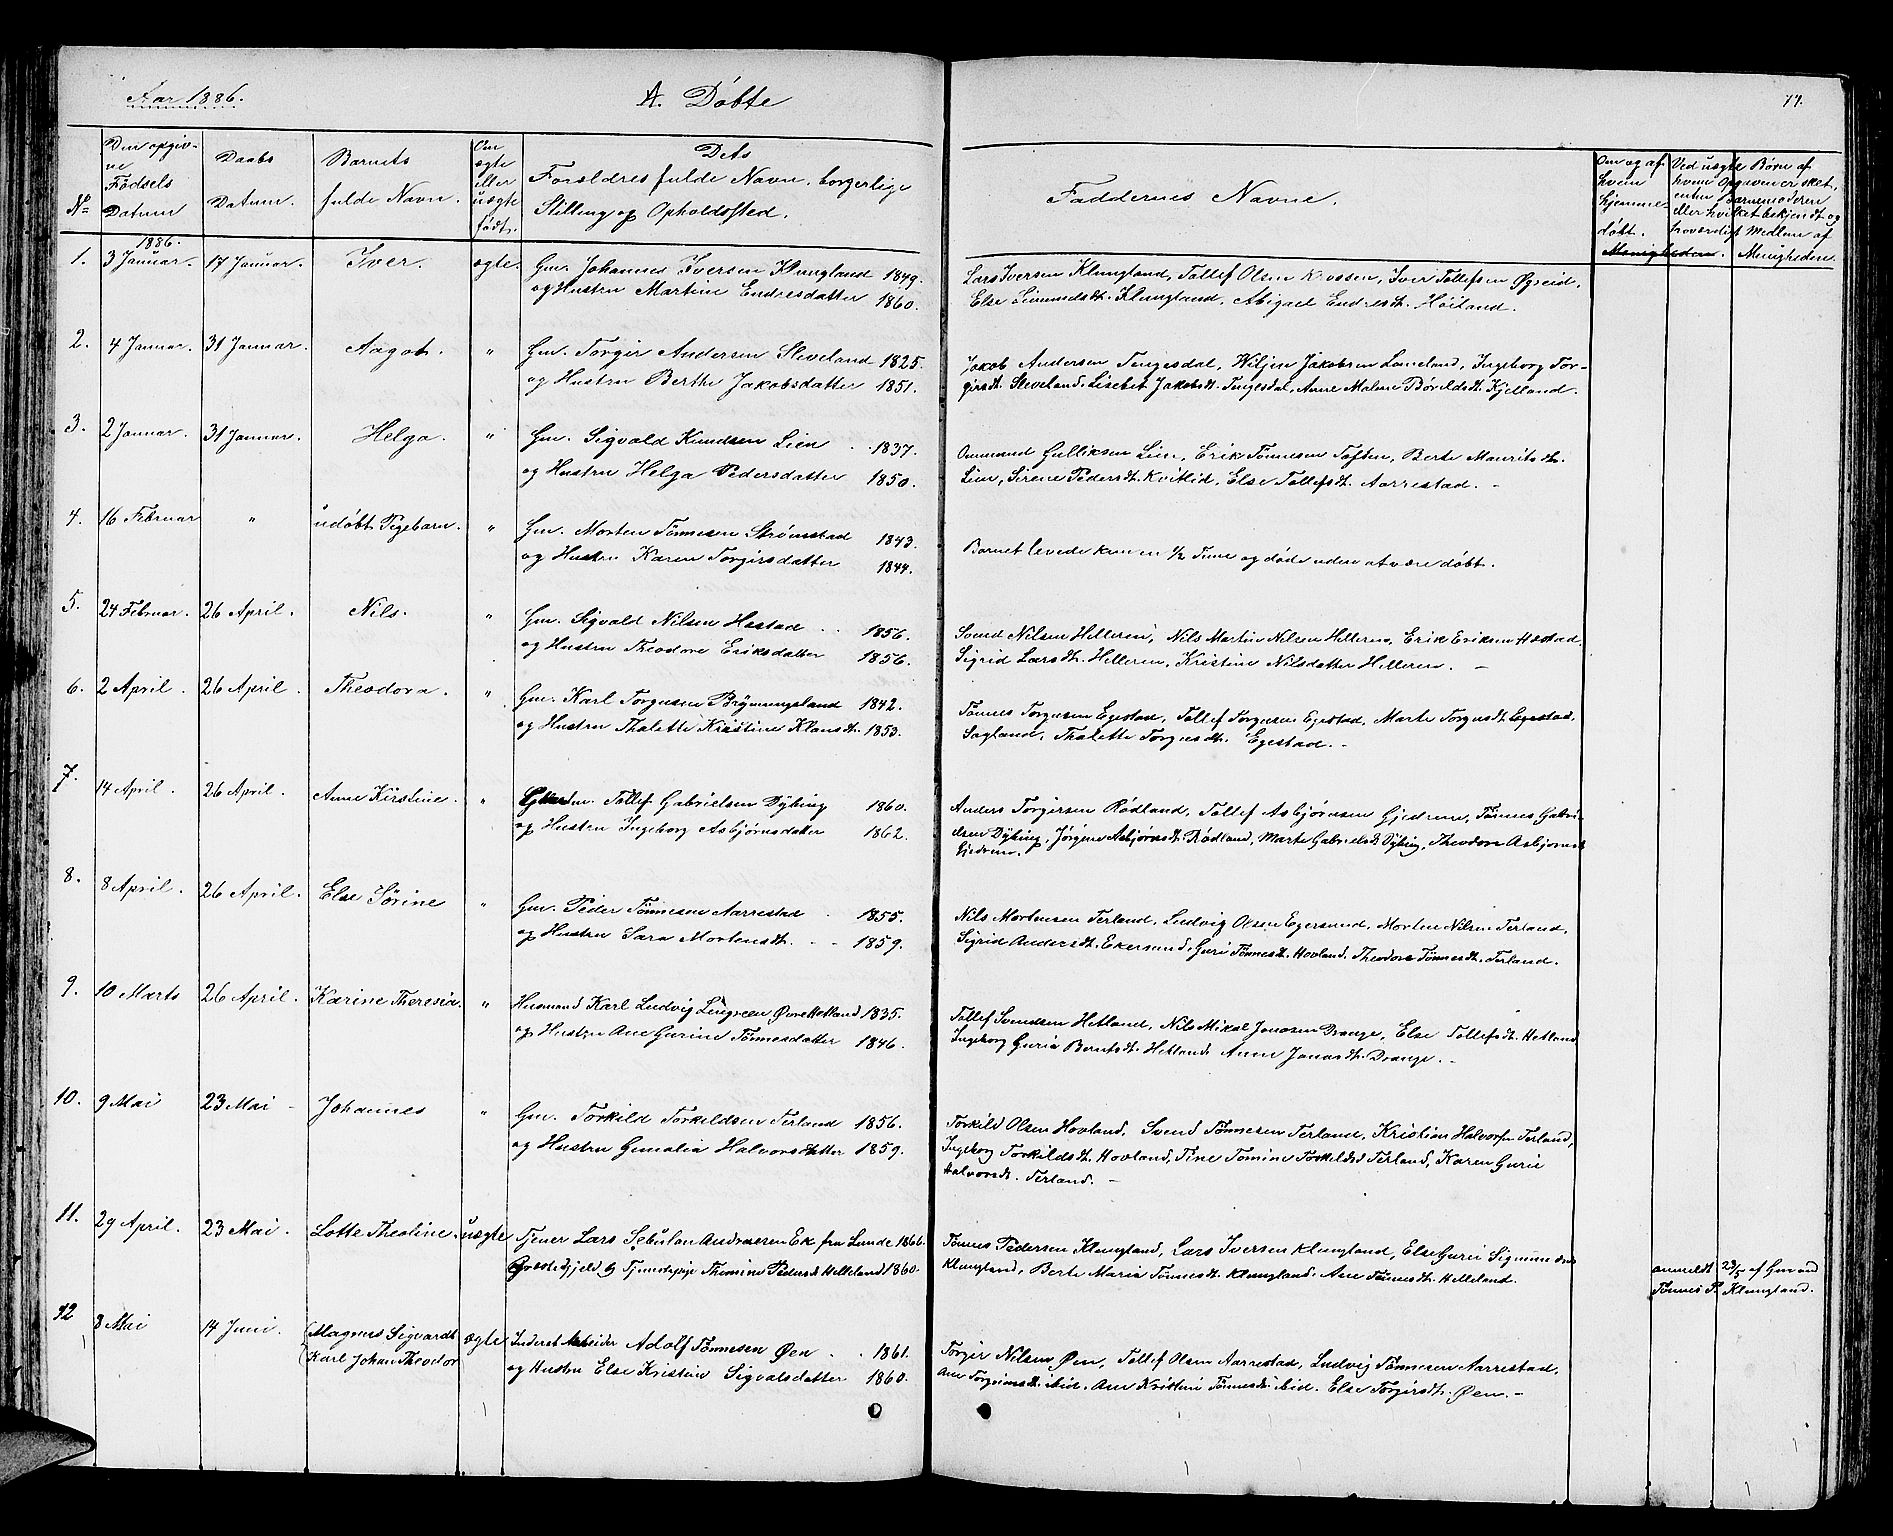 Aar 1886.
A. Døbte
77.
No
Den opgiv-
ne
Fødsels
Datum
Daabs
Datum.
Barnets
fulde Navn.
Om
ægte
eller
uægte
født.
Dets
Forældres fulde Navn, borgerlige
Stilling og Opholdssted.
Faddernes Navne.
Om og af
hvem
hjemme-
døbt.
Ved uægte Børn af
hvem Opgaven er sket,
enten Barnemoderen
eller hvilket bekjendt og
troværdigt Medlem af
Menigheden.
Menigheden.
1886.
1. 3 Januar. 17 Januar. Iver. ægte. Gm. Johannes Iversen Klungland 1849.
og Hustru Martine Endresdatter 1860.
Lars Iversen Klungland, Tollef Olsen Krossen, Iver Tollefsen Øgreid,
Else Simundsdt. Klungland, Abigael Endresdt. Høiland.
2. 4 Januar. 31 Januar. Aagot. " Gm. Torgir Andersen Sleveland 1825.
og Hustru Berthe Jakobsdatter 1851.
Jakob Andersen Tengesdal, Wiljen Jakobsen Luneland, Ingeborg Tor-
girsdt. Sleveland, Lisebet Jakobsdt. Tengesdal, Anne Malene Bårildsdt. Kjelland.
3. 2 Januar. 31 Januar. Helga. " Gm. Sigvald Knudsen Lien 1837.
og Hustru Helga Pedersdatter 1850.
Ommund Gulliksen Lien, Erik Tønnesen Toften, Berte Mauritsdt.
Lien, Sirene Pedersdt. Kvitlid, Else Tollefsdt. Aarrestad. -
4. 16 Februar " udøbt Pigebarn. " Gm. Morten Tønnesen Strømstad 1843.
og Hustru Karen Torgirsdatter 1844.
Barnet levede kun en 1/2 Time og døde uden at være døbt.
5. 24 Februar. 26 April. Nils. " Gm. Sigvald Nilsen Hestad 1856.
og Hustru Theodore Eriksdatter 1856.
Svend Nilsen Helleren, Nils Martin Nilsen Helleren, Erik Eriksen Hæstad
Sigrid Larsdt. Helleren, Kristine Nilsdatter Helleren. -
6. 2 April. 26 April. Theodora. " Gm. Karl Torgusen Brynnngsland 1842.
og Hustru Thalette Kristine Klausdt. 1853.
Tønnes Torgusen Egestad, Tollef Torgusen Egestad, Marte Torgusdt. Egestad,
Sagland, Thalette Torgusdt. Egestad. -
7. 14 April. 26 April. Anne Kirstine. " Tollef Gabrielsen Dybing 1860.
og Hustru Ingeborg Asbjørnsdatter 1862.
Anders Torgersen Rødland, Tollef Asbjørnsen Gjedrem, Tønnes Gabri-
elsen Dybing, Jørgine Asbjørnsdt. Rødland, Marte Gabrielsdt. Dybing, Theodore Asbjørnsdt
Gjedrem.
8. 8 April. 26 April. Else Sørine " Gm. Peder Tønnesen Aarrestad 1855.
og Hustru Sara Mortensdt. 1859.
Nils Mortensen Terland, Ludvig Olsen Egersund, Morten Nilsen Terland,
Sigrid Andersdt. Ekersund, Guri Tønnesdt. Hovland, Theodore Tønnesdt. Terland.
9. 10 Marts 26 April. Karine Theresia. " Husmand Karl Ludvig Lingreen Øvre Hetland 1835.
og Hustru Ane Gurine Tønnesdatter 1846.
Tollef Svendsen Hetland, Nils Mikal Jonassen Drange, Else Tollefsdt. Hetland
Ingeborg Guria Berntsdt. Hetland Anne Jonasdt. Drange. -
10. 9 Mai 23 Mai - Johannes " Gm. Torkild Torkildsen Terland 1856.
og Hustru Gunalia Halvorsdatter 1859.
Torkild Olsen Hovland, Svend Tønnesen Terland, Kristian Halvorsen Terland,
Ingeborg Torkildsdt. Hovland, Tine Tomine Torkildsdt Terland, Karen Gurie
Halvorsdt. Terland. -
11. 29 April. 23 Mai. Lotte Theoline. uægte Tjener Lars Sebulon Andreassen Ek fra Lunde 1866.
og Tjenestepige Thomine Pedersdt Helleland 1860.
Tønnes Pedersen Klungland, Lars Iversen Klungland, Else Guri Sigmundsdt
Klungland, Berte Maria Tønnesdt. Klungland. Ane Tønnesdt. Helleland.
anmeldt 23/5 af Gm ond
Tønnes P. Klungland.
12 8 Mai 14 Juni. Magnus Sigvardt ægte Inderst Arbeider Adolf Tønnesen Øen 1861.
Karl Johan Theodor og Hustru Else Kristine Sigvalsdatter 1860.
Torgir Nilsen Øen, Tollef Olsen Aarrestad, Ludvig Tønnesen Aarrestad,
Ane Torgrimsdt. ibid, Ane Kristine Tønnesdt ibid. Else Torgirsdt. Øen. -